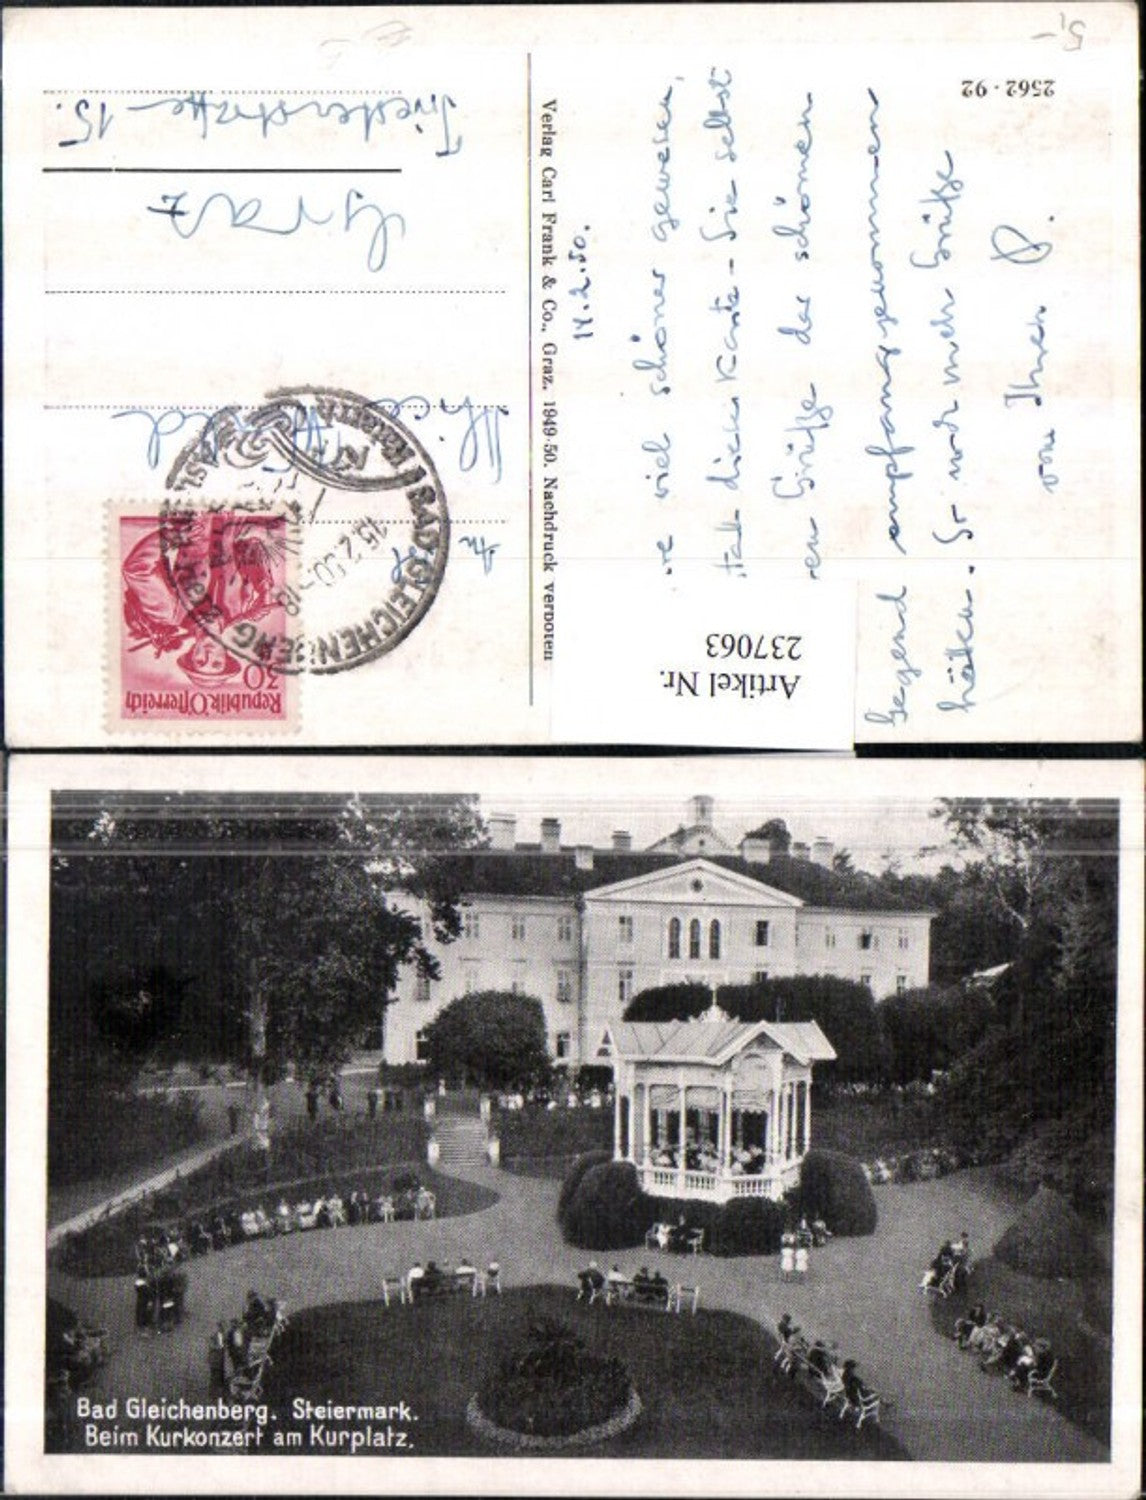 5,-
2562 - 92
14.2.50.
viel schöner gewesen,
diese Karte - Sie selbst
Grüße der schönen
Gegend empfangen genommen
hätten. So noch mehr Grüße
von Ihrem
Artikel Nr.
237063
Verlag Carl Frank & Co., Graz. 1949-50. Nachdruck verboten
Republik Österreich
30
BAD GLEICHENBERG
15.2.50-18
An
Graz
15.
Bad Gleichenberg. Steiermark.
Beim Kurkonzert am Kurplatz.